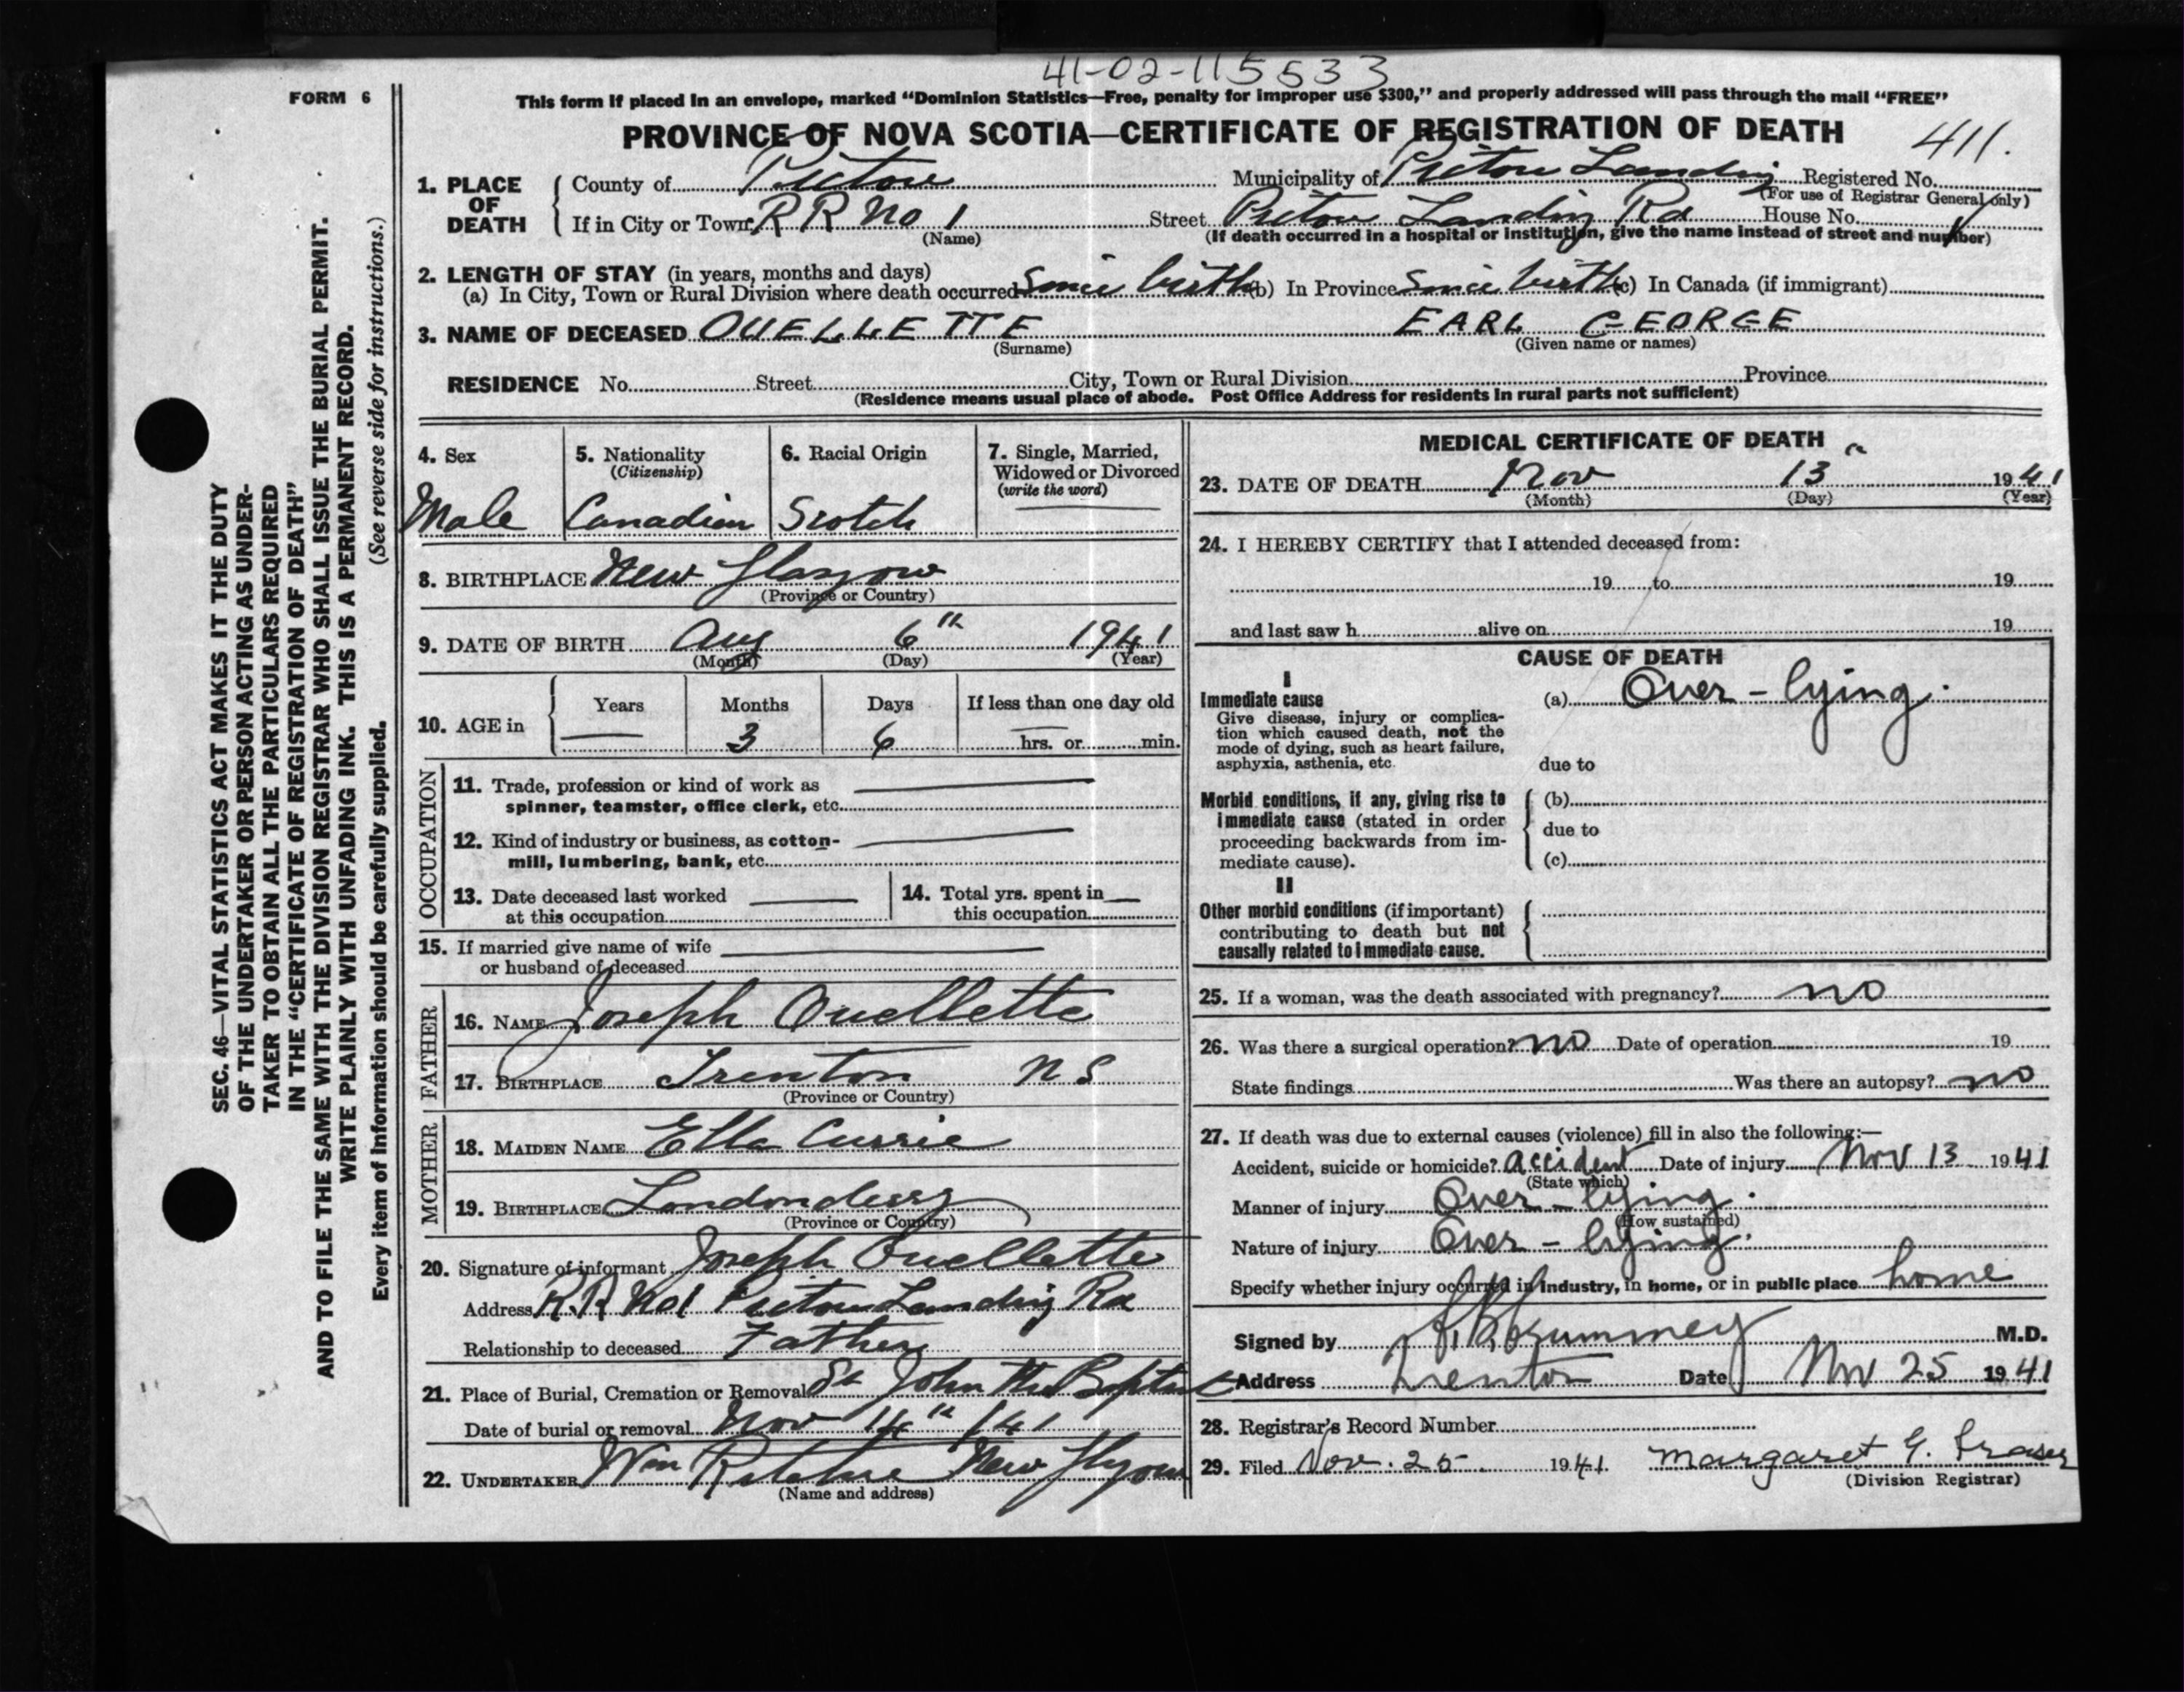 41-02-115533
FORM 6
This form if placed in an envelope, marked "Dominion Statistics—Free, penalty for improper use $300," and properly addressed will pass through the mail "FREE"
PROVINCE OF NOVA SCOTIA—CERTIFICATE OF REGISTRATION OF DEATH
411.
1. PLACE OF DEATH County of Pictou Municipality of Pictou Landing Registered No.
(For use of Registrar General only)
If in City or Town RR No 1 Street Pictou Landing Rd House No.
(Name) (If death occurred in a hospital or institution, give the name instead of street and number)
2. LENGTH OF STAY (in years, months and days)
(a) In City, Town or Rural Division where death occurred Since birth (b) In Province Since birth (c) In Canada (if immigrant)
3. NAME OF DECEASED OUELLETTE EARL GEORGE
(Surname) (Given name or names)
RESIDENCE No. Street City, Town or Rural Division Province
(Residence means usual place of abode. Post Office Address for residents in rural parts not sufficient)
4. Sex
Male
5. Nationality
(Citizenship)
Canadian
6. Racial Origin
Scotch
7. Single, Married,
Widowed or Divorced
(write the word)
8. BIRTHPLACE New Glasgow
(Province or Country)
9. DATE OF BIRTH Aug 6th 1941
(Month) (Day) (Year)
10. AGE in
Years Months Days If less than one day old
3 6 hrs. or min.
OCCUPATION
11. Trade, profession or kind of work as
spinner, teamster, office clerk, etc.
12. Kind of industry or business, as cotton-
mill, lumbering, bank, etc.
13. Date deceased last worked
at this occupation
14. Total yrs. spent in
this occupation
15. If married give name of wife
or husband of deceased
FATHER
16. NAME Joseph Ouellette
17. BIRTHPLACE Trenton N S
(Province or Country)
MOTHER
18. MAIDEN NAME Ella Currie
19. BIRTHPLACE Londonderry
(Province or Country)
20. Signature of informant Joseph Ouellette
Address R.R No1 Pictou Landing Rd
Relationship to deceased Father
21. Place of Burial, Cremation or Removal St John The Baptist
Date of burial or removal Nov 14th / 41
22. UNDERTAKER Wm Ritchie New Glasgow
(Name and address)
MEDICAL CERTIFICATE OF DEATH
23. DATE OF DEATH Nov 13 1941
(Month) (Day) (Year)
24. I HEREBY CERTIFY that I attended deceased from:
19 to 19
and last saw h alive on 19
CAUSE OF DEATH
I
Immediate cause
Give disease, injury or complica-
tion which caused death, not the
mode of dying, such as heart failure,
asphyxia, asthenia, etc.
(a) Over-lying.
due to
Morbid conditions, if any, giving rise to
immediate cause (stated in order
proceeding backwards from im-
mediate cause).
(b)
due to
(c)
II
Other morbid conditions (if important)
contributing to death but not
causally related to immediate cause.
25. If a woman, was the death associated with pregnancy? no
26. Was there a surgical operation? no Date of operation 19
State findings Was there an autopsy? no
27. If death was due to external causes (violence) fill in also the following:—
Accident, suicide or homicide? accident Date of injury Nov 13 1941
(State which)
Manner of injury Over-lying.
(How sustained)
Nature of injury Over-lying.
Specify whether injury occurred in industry, in home, or in public place home
Signed by M.D.
Address Trenton Date Nov 25 1941
28. Registrar's Record Number
29. Filed Nov. 25 1941 Margaret G. Fraser
(Division Registrar)
SEC. 46—VITAL STATISTICS ACT MAKES IT THE DUTY
OF THE UNDERTAKER OR PERSON ACTING AS UNDER-
TAKER TO OBTAIN ALL THE PARTICULARS REQUIRED
IN THE "CERTIFICATE OF REGISTRATION OF DEATH"
AND TO FILE THE SAME WITH THE DIVISION REGISTRAR WHO SHALL ISSUE THE BURIAL PERMIT.
WRITE PLAINLY WITH UNFADING INK. THIS IS A PERMANENT RECORD.
(See reverse side for instructions.)
Every item of information should be carefully supplied.